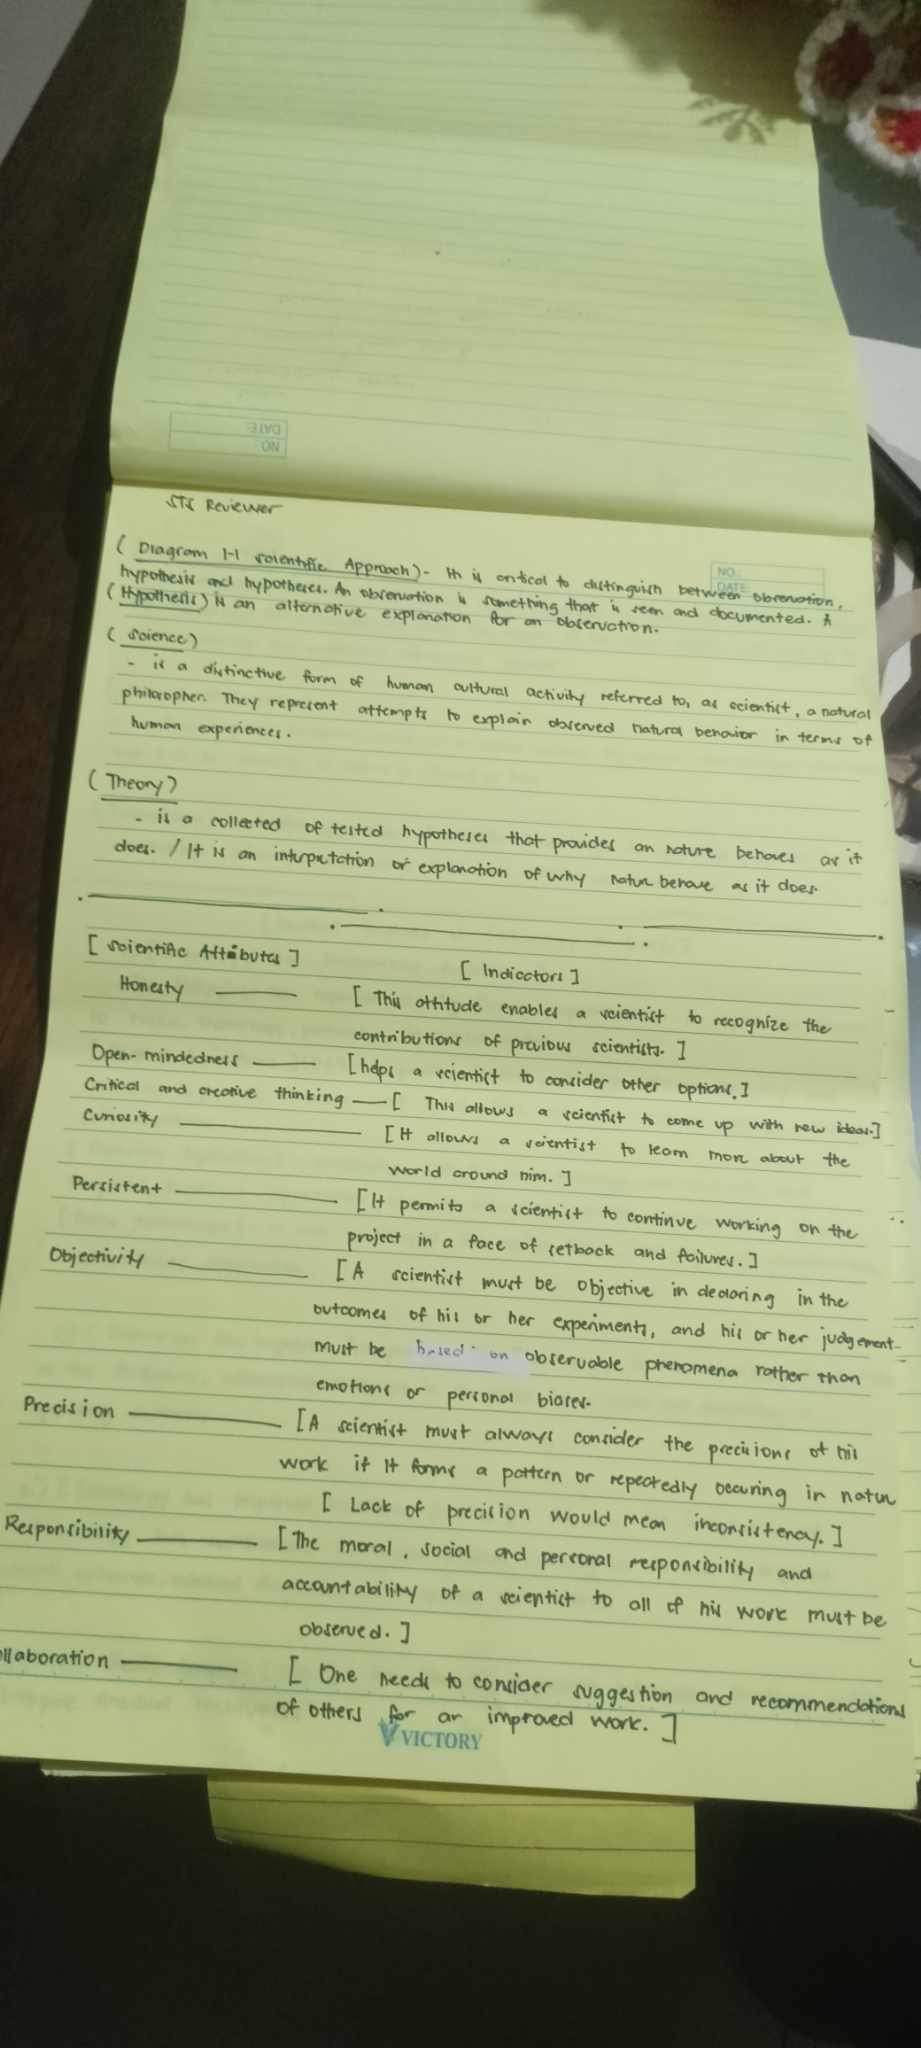 DATE:
NO:
STS Reviewer
NO.:
DATE:
( Diagram 1-1 scientific Approach) - It is critical to distinguish between observation,
hypothesis and hypotheses. An observation is something that is seen and documented. A
( Hypothesis ) is an alternative explanation for an observation.
( Science )
- is a distinctive form of human cultural activity referred to, as scientist, a natural
philosopher. They represent attempts to explain observed natural behavior in terms of
human experiences.
( Theory )
- is a collected of tested hypotheses that provides an nature behaves as it
does. / It is an interpretation or explanation of why nature behave as it does.
[ Scientific Attributes ] [ Indicators ]
Honesty [ This attitude enables a scientist to recognize the
contributions of previous scientists. ]
Open-mindedness [ helps a scientist to consider other options. ]
Critical and creative thinking [ This allows a scientist to come up with new ideas. ]
Curiosity [ It allows a scientist to learn more about the
world around him. ]
Persistent [ It permits a scientist to continue working on the
project in a face of setback and failures. ]
Objectivity [ A scientist must be objective in declaring in the
outcomes of his or her experiments, and his or her judgement
must be based on observable phenomena rather than
emotions or personal biases.
Precision [ A scientist must always consider the precisions of his
work if it forms a pattern or repeatedly occuring in nature
[ Lack of precision would mean inconsistency. ]
Responsibility [ The moral, social and personal responsibility and
accountability of a scientist to all of his work must be
observed. ]
llaboration [ One needs to consider suggestion and recommendations
of others for an improved work. ]
VICTORY